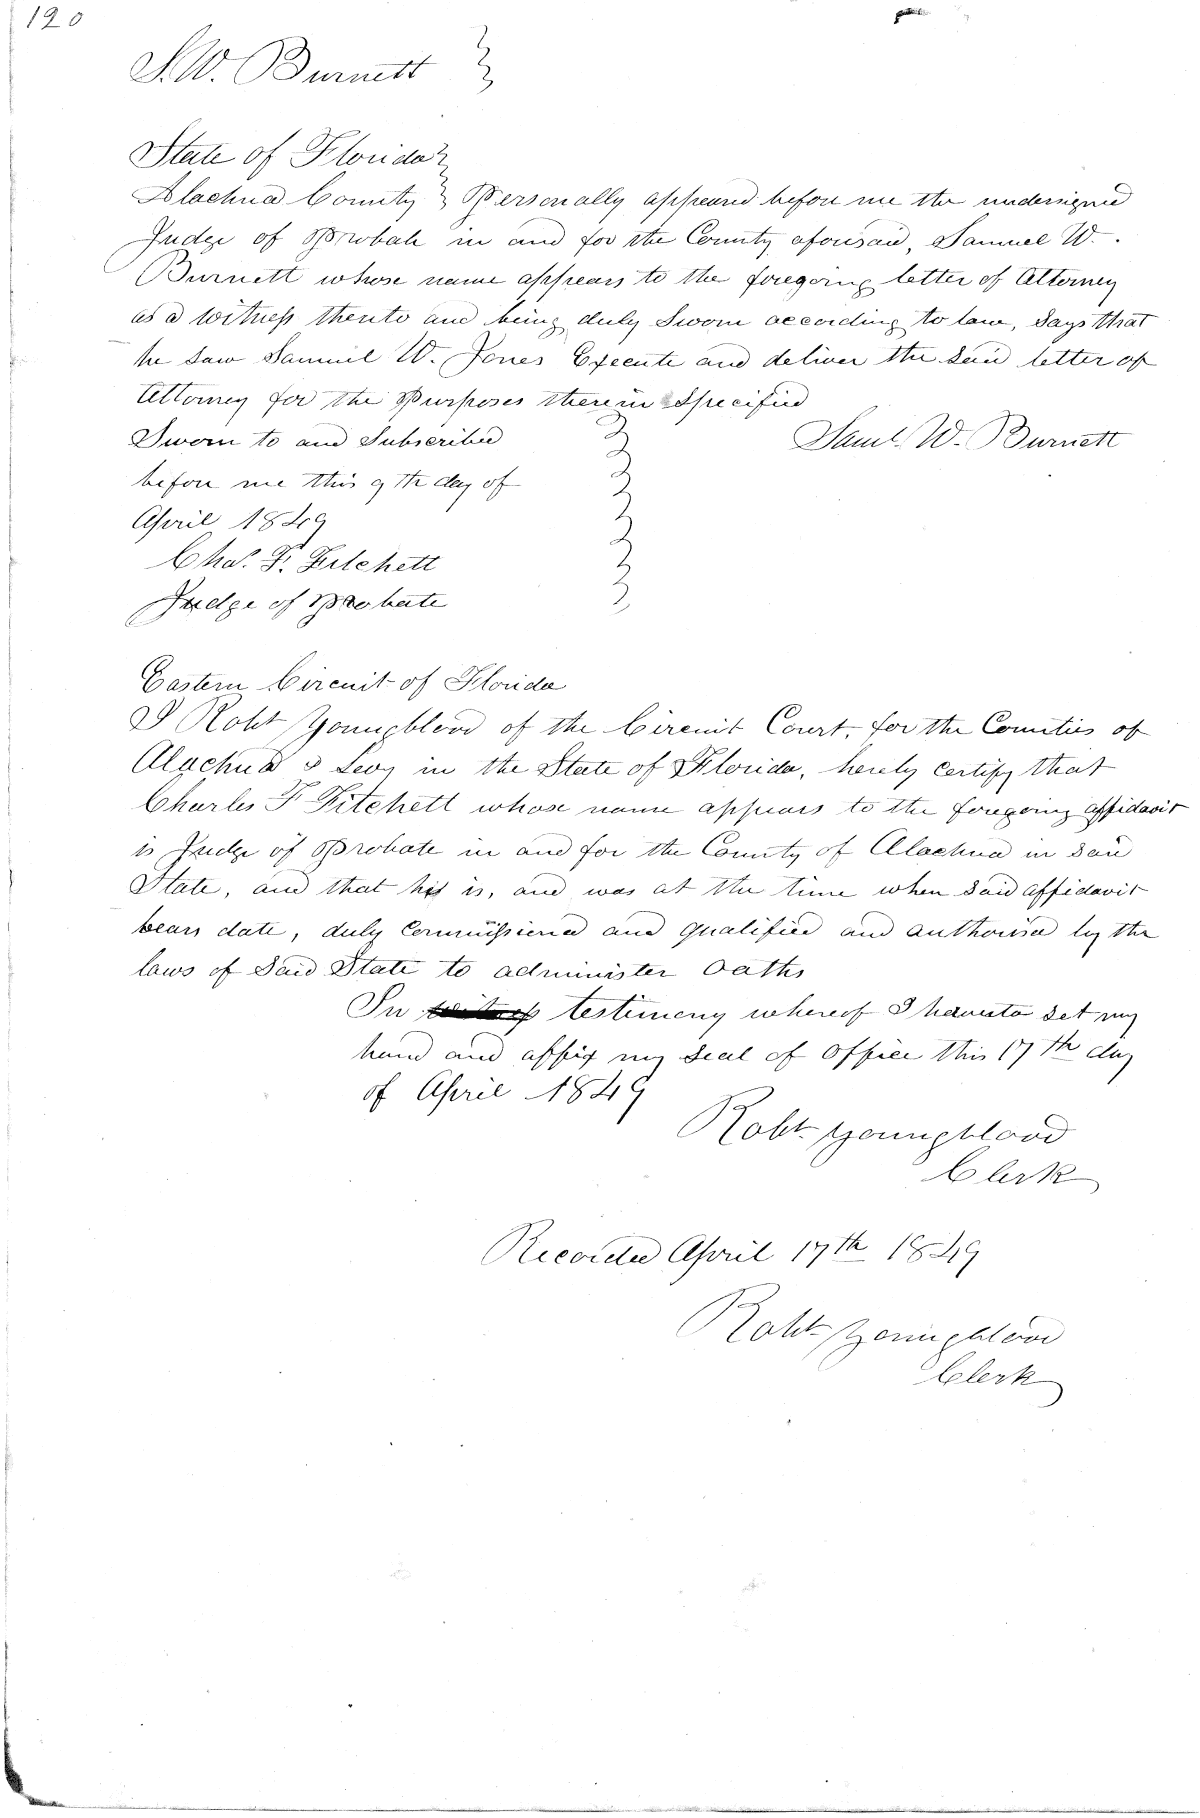 120
S. W. Burnett
State of Florida
Alachua County } Personally appeared before me the undersigned
Judge of Probate in and for the County aforesaid, Samuel W.
Burnett whose name appears to the foregoing letter of Attorney
as a witness thereto and being duly Sworn according to law, Says that
he Saw Samuel W. Jones Execute and deliver the said letter of
Attorney for the Purposes therein Specified
Sworn to and Subscribed
Saml. W. Burnett
before me this 9th day of
April 1849
Chas. F. Fitchett
Judge of Probate
Eastern Circuit of Florida
I Robt Youngblood of the Circuit Court, for the Counties of
Alachua & Levy in the State of Florida, hereby certify that
Charles F Fitchett whose name appears to the foregoing affidavit
is Judge of Probate in and for the County of Alachua in said
State, and that his is, and was at the time when said affidavit
bears date, duly Commissioned and qualified and authorised by the
laws of Said State to administer Oaths
In witness testimony whereof I hereunto set my
hand and affix my seal of office this 17th day
of April 1849
Robt Youngblood
Clerk
Recorded April 17th 1849
Robt Youngblood
Clerk